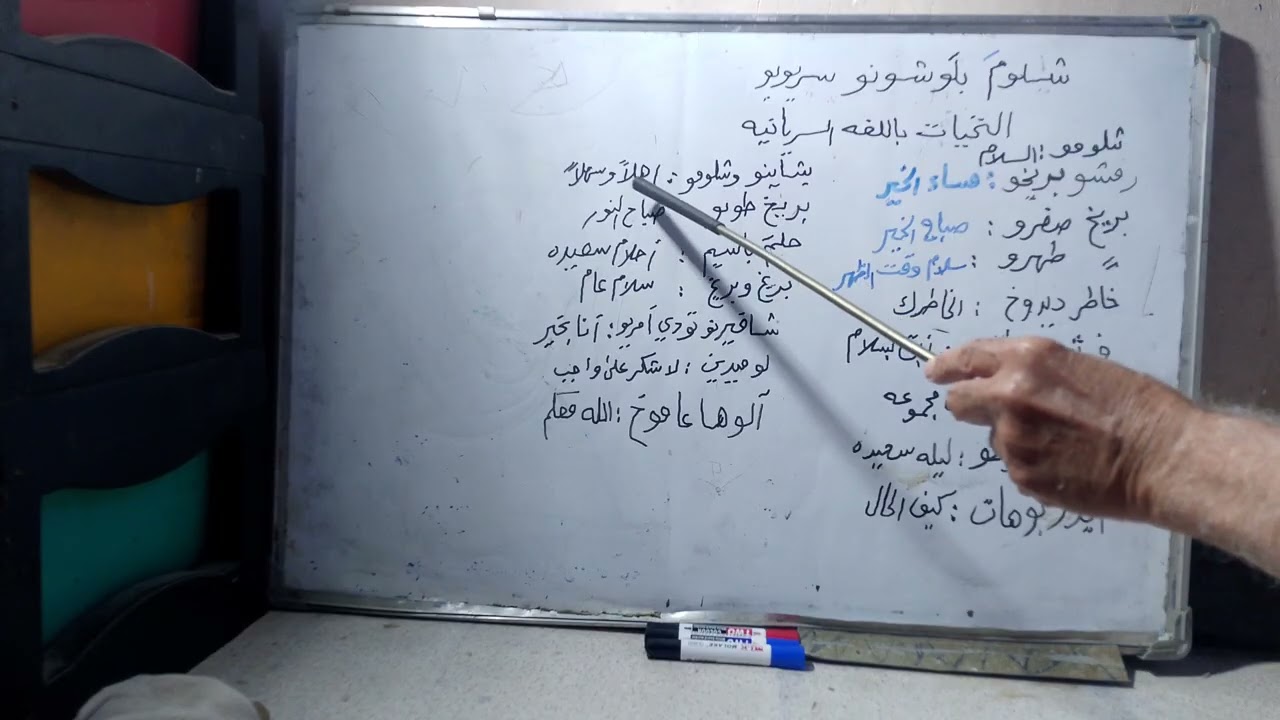 شلومَ بلَوشونو سريويو
التحيات باللغه السريانيه
شلومو : السلام
رمشو بريخو : مساء الخير
بريخ صفرو : صباح الخير
طهرو : سلام وقت الظهر
خاطر ديروخ : الخاطرك
السلام
مجموعه
ليله سعيده
بوهات : كيف الحال
بشَاينو وشلومو : اهلاً وسهلاً
بريخ طوبو صباح النور
حلمَ باسيم : أحلام سعيده
بريخ وبريخ : سلام عام
شاقيرنو تودي آمريو : آنا بخير
لو ميدين : لا شكر على واجب
آلوها عاموخ : الله معكم
TWO